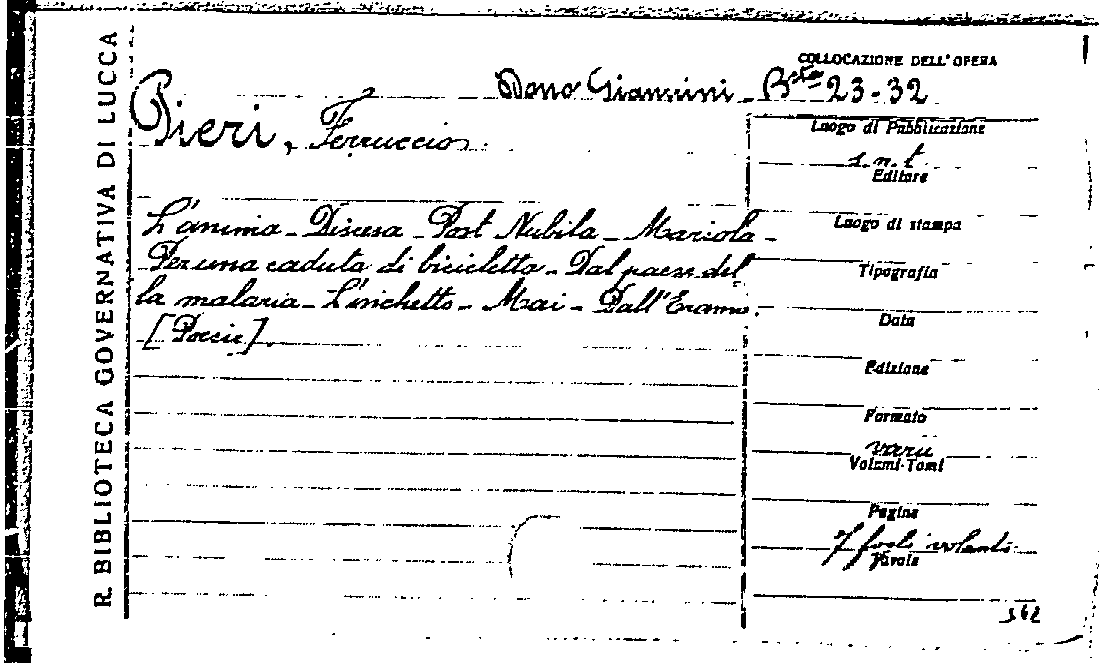 R. BIBLIOTECA GOVERNATIVA DI LUCCA
COLLOCAZIONE DELL'OPERA
Dono Giannini B.ta 23-32
Pieri, Ferruccio
Luogo di Pubblicazione
s.n.t
Editore
Luogo di stampa
Tipografia
Data
Edizione
Formato
varii
Volumi-Tomi
Pagine
7 fogli volanti
Tavole
L'anima - Discesa - Post Nubila - Mariola -
Per una caduta di bicicletta - Dal paese del
la malaria - L'inchetto - Mai - Dall'Eramo.
[Poesie].